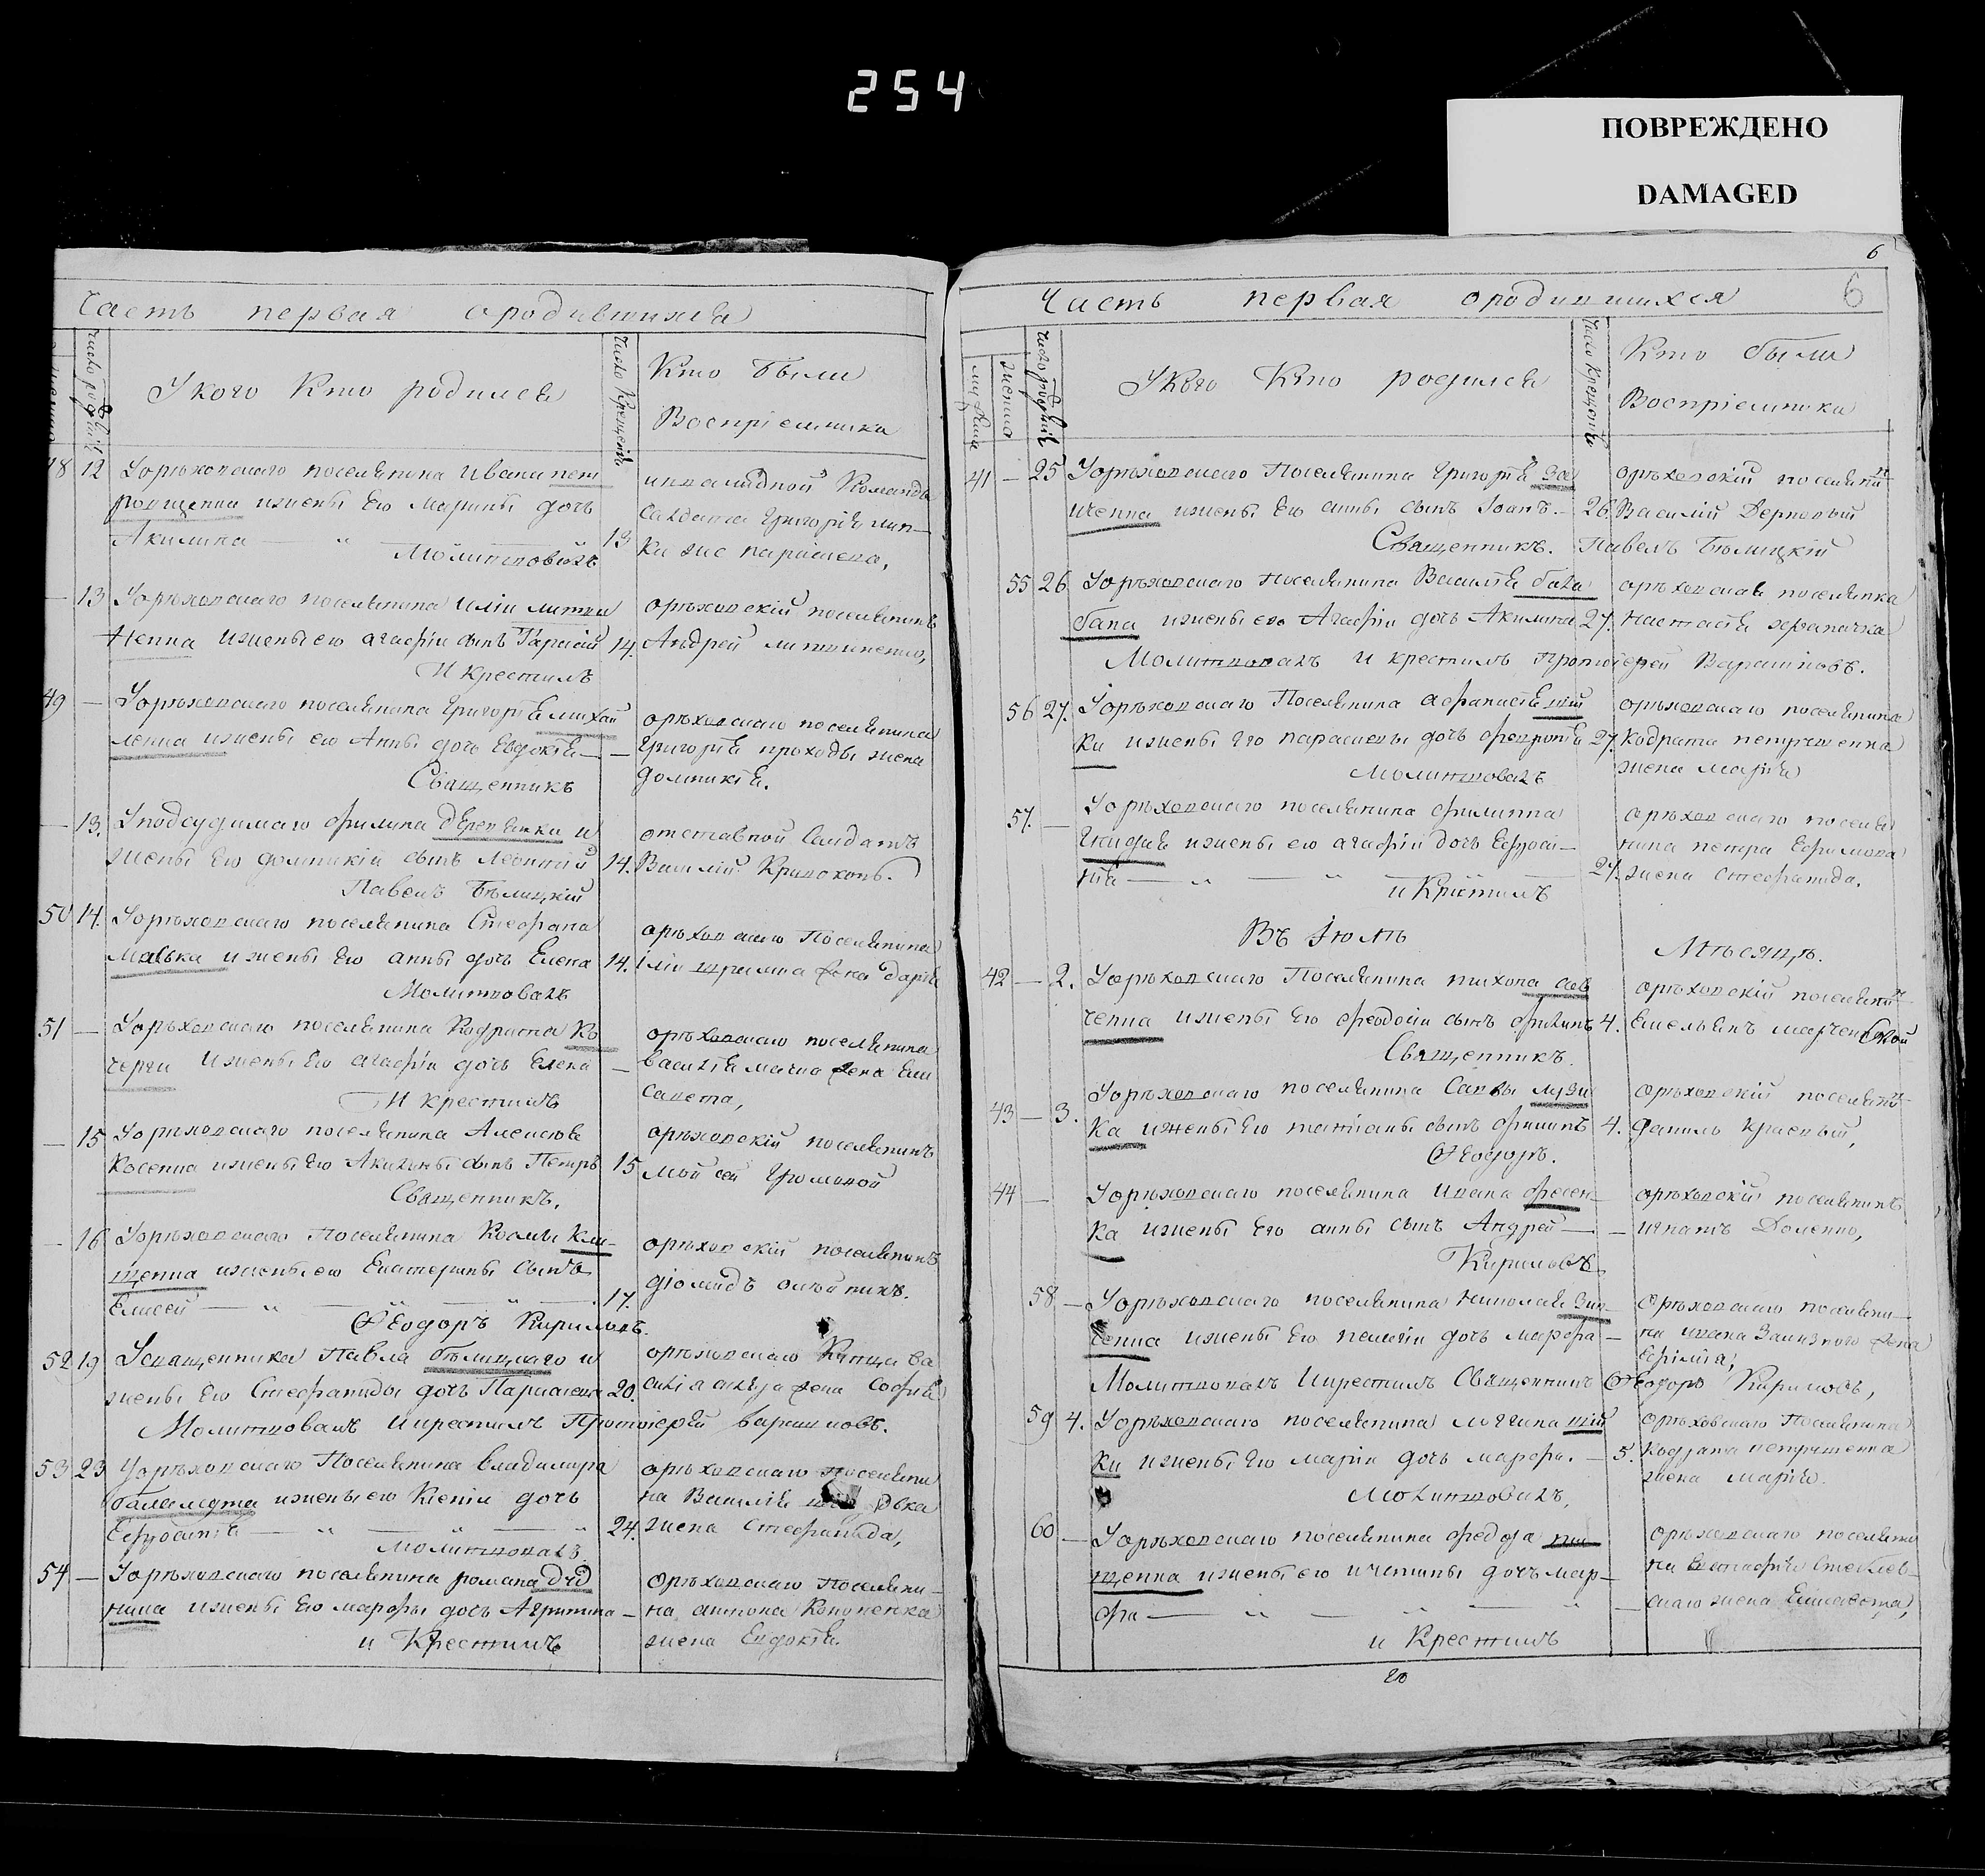 254
ПОВРЕЖДЕНО
DAMAGED
Часть первая ородившихся
Число рожденія
Укого Кто родился
Число Крещенія
Кто были
Воспріемники
48 12 Уорѣховскаго поселянина Ивана пет
рощенка ижены Его Марины дочь
Акилина — „ 13
Молитвовалъ
инвалидной Команды
Салдата Григорія
— 13 Уорѣховскаго поселянина Иліи литви
ненка ижены его агафіи сынъ 14.
И крестилъ
орѣховскій поселянинъ
Андрей литвиненко,
49 — Уорѣховскаго поселянина Григорія михай
ленка ижены его Анны дочь Евдокія — —
Священникъ
орѣховскаго поселянина
Григорія проходы жена
домникія.
— 13. Уподсудимаго Филипа деревянки и
жены Его домникіи сынъ леонтій 14.
Павелъ Бѣлицкій
отставной Салдатъ
Василій Кривоконь.
50 14. Уорѣховскаго поселянина Стефана
ижены Его анны дочь Елена 14.
Молитвовалъ
орѣховскаго Поселянина
Іліи жена дарія
51 — Уорѣховскаго поселянина Кодрата Ко
черги ижены Его агафіи дочь Елена —
И крестилъ
орѣховскаго поселянина
василія жена Ели
савета,
— 15 Уорѣховскаго поселянина Алексѣя
Косенка ижены Его Акилины сынъ Петръ 15
Священникъ.
орѣховскій поселянинъ
Мойсей
— 16 Уорѣховскаго Поселянина Космы Кли-
щенка ижены его Екатерины сынъ
Елисей — „ — „ — „ — 17.
Ѳеодоръ Кириловъ.
орѣховскій поселянинъ
діомидъ олѣйникъ.
52 19 Усвященника Павла бѣлицкаго и
жены Его Стефаниды дочь Параскева 20.
Молитвовалъ Икрестилъ Протоіерей варшавовъ.
орѣховскаго Купца ва
силія жена Софія
53 23 Уорѣховскаго Поселянина владимира
баламута ижены его Ксеніи дочь
Ефросинія — „ — „ — „ 24.
Молитвовалъ
орѣховскаго поселяни
на Василія
жена Стефанида,
54 — Уорѣховскаго поселянина романа дчд
ника ижены Его марфы дочь Агрипина —
и Крестилъ
орѣховскаго Поселяни-
на антона Кононенка
жена Евдокія.
6
6
Часть первая ородившихся
мужеска
женска
Число рожденія
Укого Кто родился
Число Крещенія
Кто были
Воспріемники
41 — 25 Уорѣховскаго Поселянина Григорія
ченка ижены Его анны сынъ Іоанъ. — 26.
Священникъ. Павелъ Бѣлицкій
орѣховскій поселянинъ
Василій Дерновый
55 26 Уорѣховскаго Поселянина Василія бала
бана ижены его Агафіи дочь Акилина 27.
Молитвовалъ и крестилъ Протоіерей Варшавовъ.
орѣховская поселянка
Настасія
56 27. Уорѣховскаго Поселянина афанасія
ки ижены Его параскевы дочь февронія 27.
Молитвовалъ
орѣховскаго поселянина
Кодрата петрушенка
жена марія
57. — Уорѣховскаго поселянина филиппа
ижены его агафіи дочь Ефроси-
нія — „ — „ — 27.
и Крестилъ
орѣховскаго поселя
нина петра Ефимова
жена Стефанида.
Въ Іюлѣ Мѣсяцѣ.
42 — 2. Уорѣховскаго Поселянина тихона сав
ченка ижены Его феодосіи сынъ 4.
Священникъ.
орѣховскій поселянинъ
Емельянъ марченской
43 — 3. Уорѣховскаго поселянина Саввы музи
ка ижены Его татіаны сынъ филипъ 4.
Ѳеодоръ.
орѣховскій поселянинъ
Данилъ красный,
44 — Уорѣховскаго поселянина ивана фесен-
ка ижены Его анны сынъ Андрей — —
Кириловъ
орѣховскій поселянинъ
игнатъ Доленко,
58 — Уорѣховскаго поселянина николая зин-
ченка ижены Его пелагіи дочь марфа —
Молитвовалъ Икрестилъ Священникъ Ѳеодоръ Кириловъ,
орѣховскаго поселяни-
на ивана жена
Ефимія,
59 4. Уорѣховскаго поселянина логгина
ки ижены Его маріи дочь марфа. — 5.
Молитвовалъ,
орѣховскаго Поселянина
Кодрата петрушенка
жена марія.
60 — Уорѣховскаго поселянина федора
щенка ижены его дочь мар-
фа — „ — „ — „ —
и Крестилъ
орѣховскаго поселяни
на Евстафія
жена Елисавета,
го